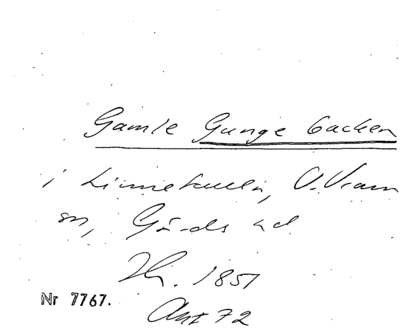 Gamle Gunge backen
i Linnekulla, V. Vram
sn, Gärds hd
Ill. 1851
Nr 7767.
Ant 72